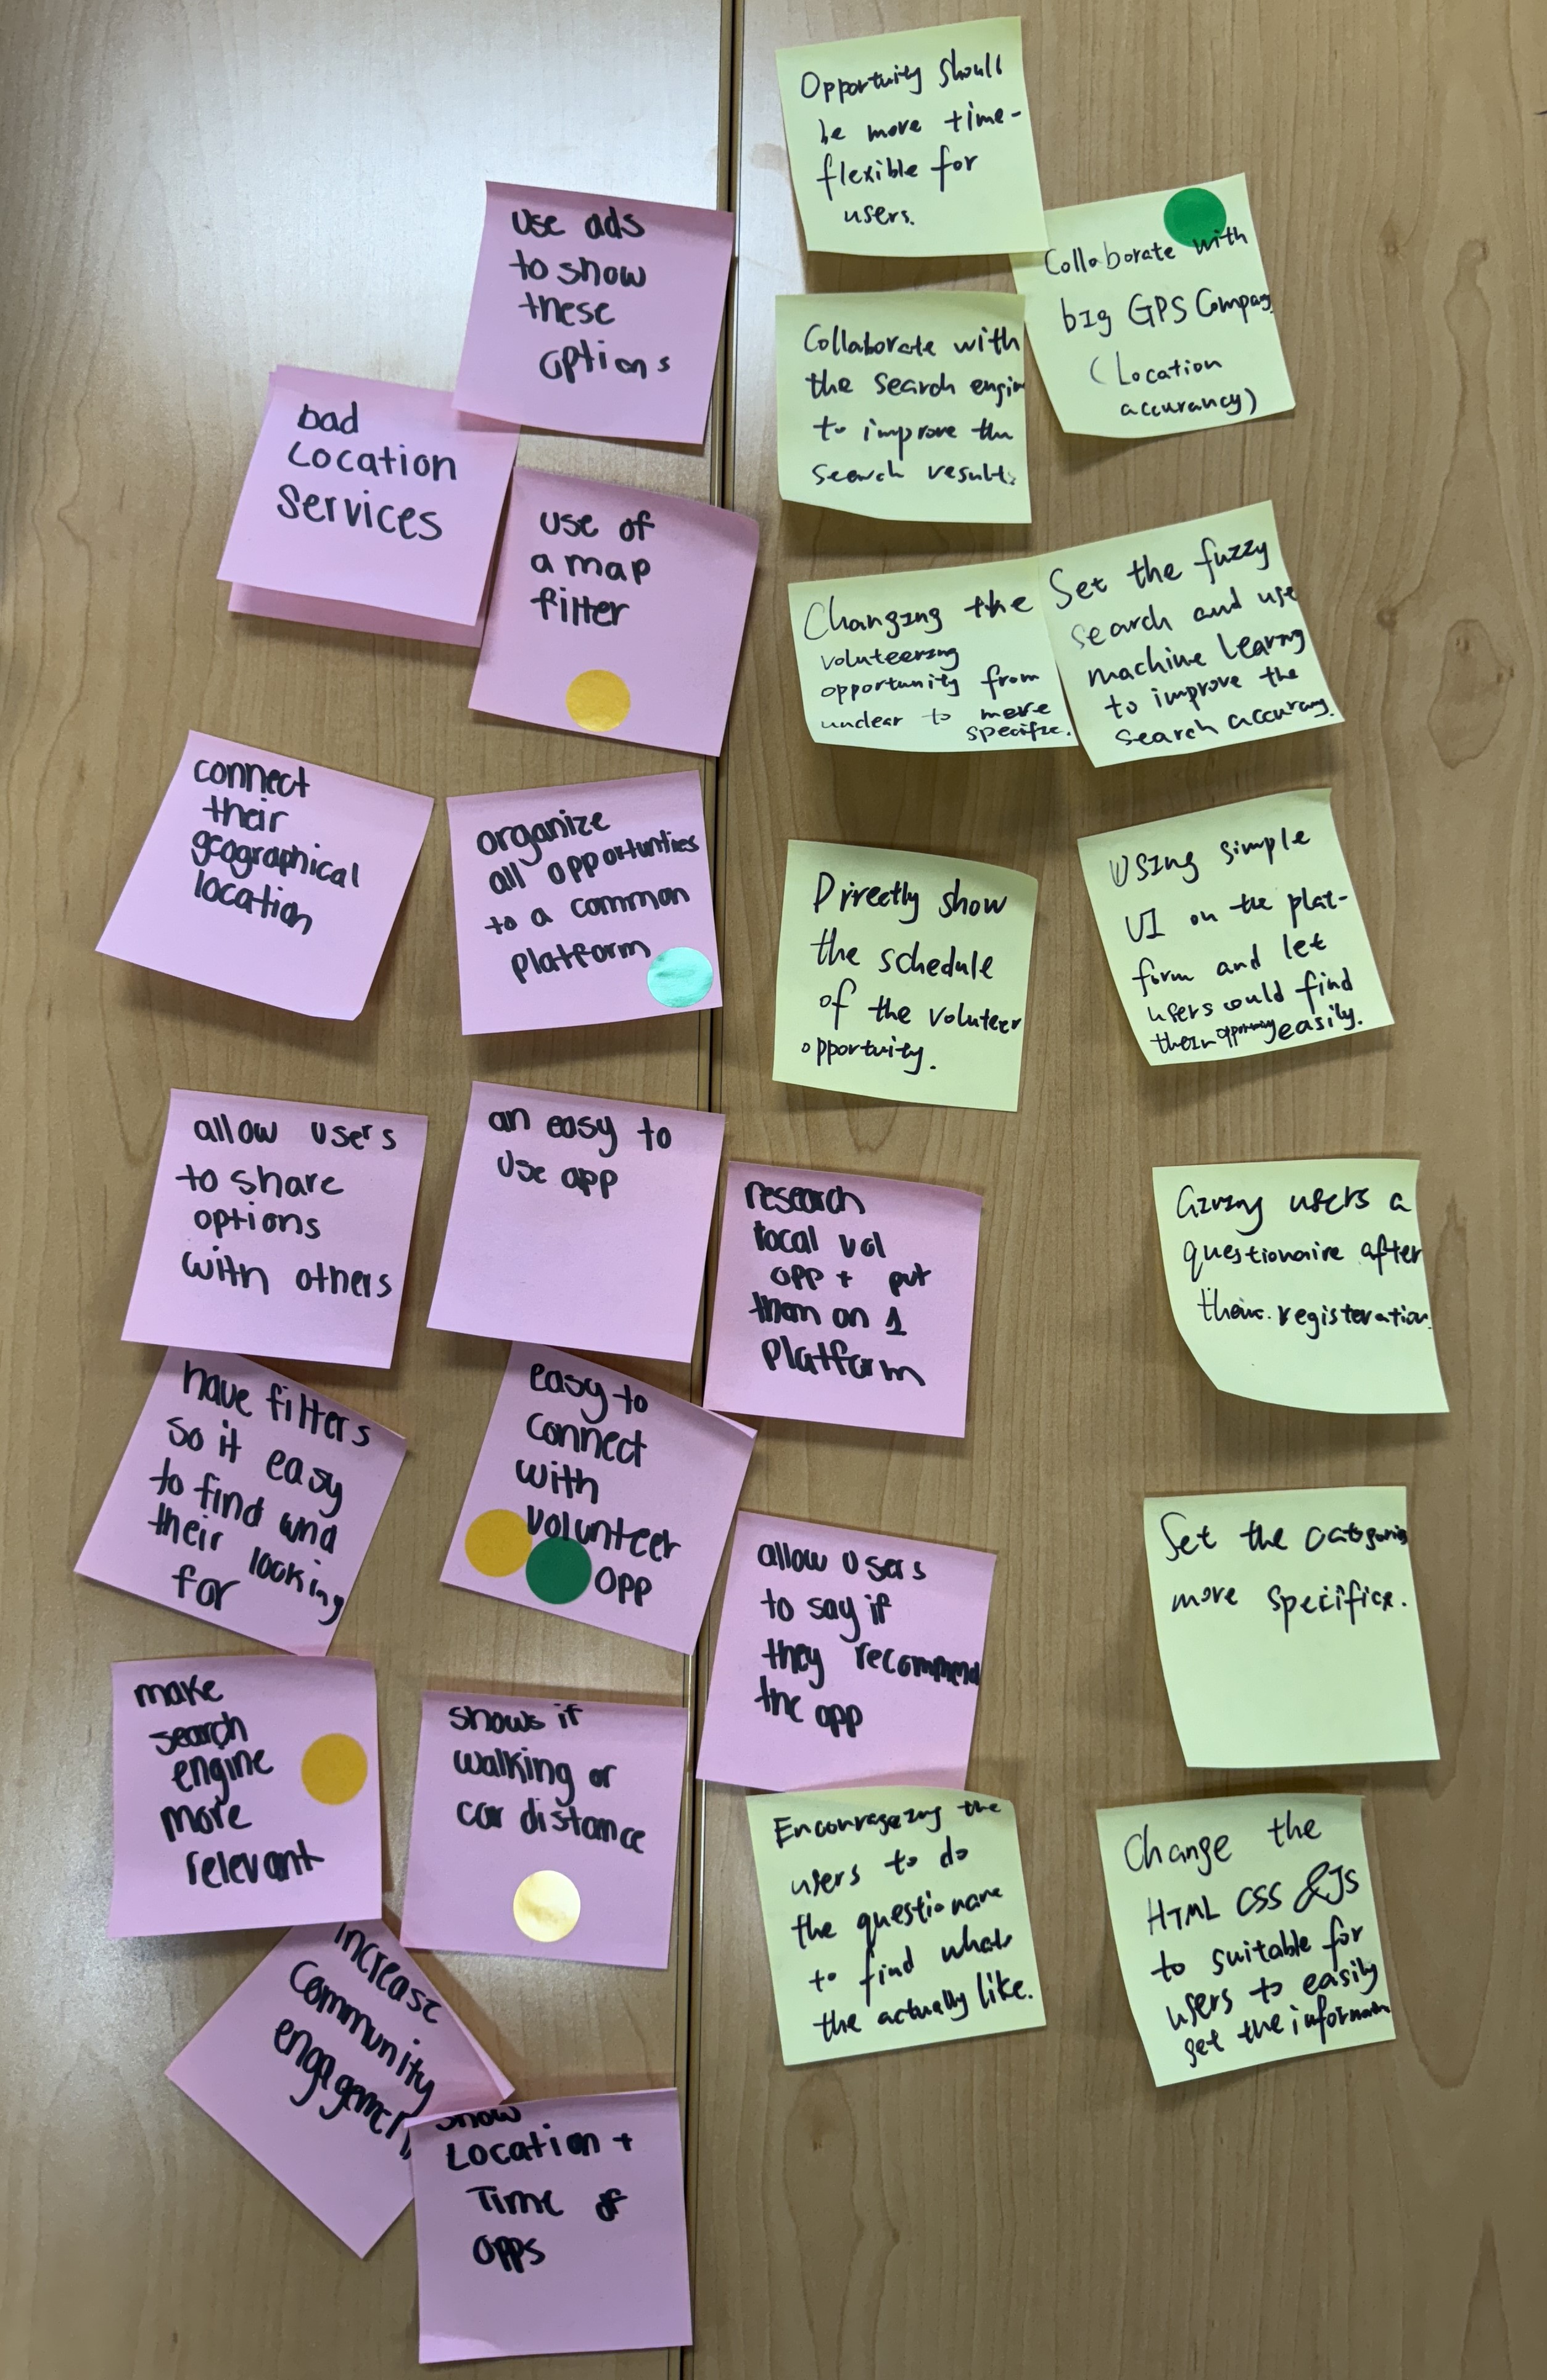 use ads
to show
these
options
bad
Location
Services
use of
a map
filter
connect
their
geographical
location
organize
all opportunities
to a common
platform
allow users
to share
options
with others
an easy to
use app
research
local vol
opp + put
them on 1
platform
have filters
so it easy
to find and
their looking
for
easy to
connect
with
volunteer
opp
allow users
to say if
they recommend
the app
make
search
engine
more
relevant
shows if
walking or
car distance
increase
community
engagement
show
Location +
Time of
opps
Opportunity should
be more time-
flexible for
users.
Collaborate with
big GPS Company
(Location
accurancy)
Collaborate with
the search engin
to improve the
search result.
Changing the
voluteering
opportunity from
unclear to more
specific.
Set the fuzzy
search and use
machine learning
to improve the
search accurany.
Directly show
the schedule
of the voluteer
opportuity.
Using simple
UI on the plat-
form and let
users could find
their opportunity easily.
Giving users a
questionaire after
their registeration.
Set the categories
more specifice.
Encouragezing the
users to do
the questionare
to find whats
the actually like.
Change the
HTML CSS & JS
to suitable for
users to easily
get the information